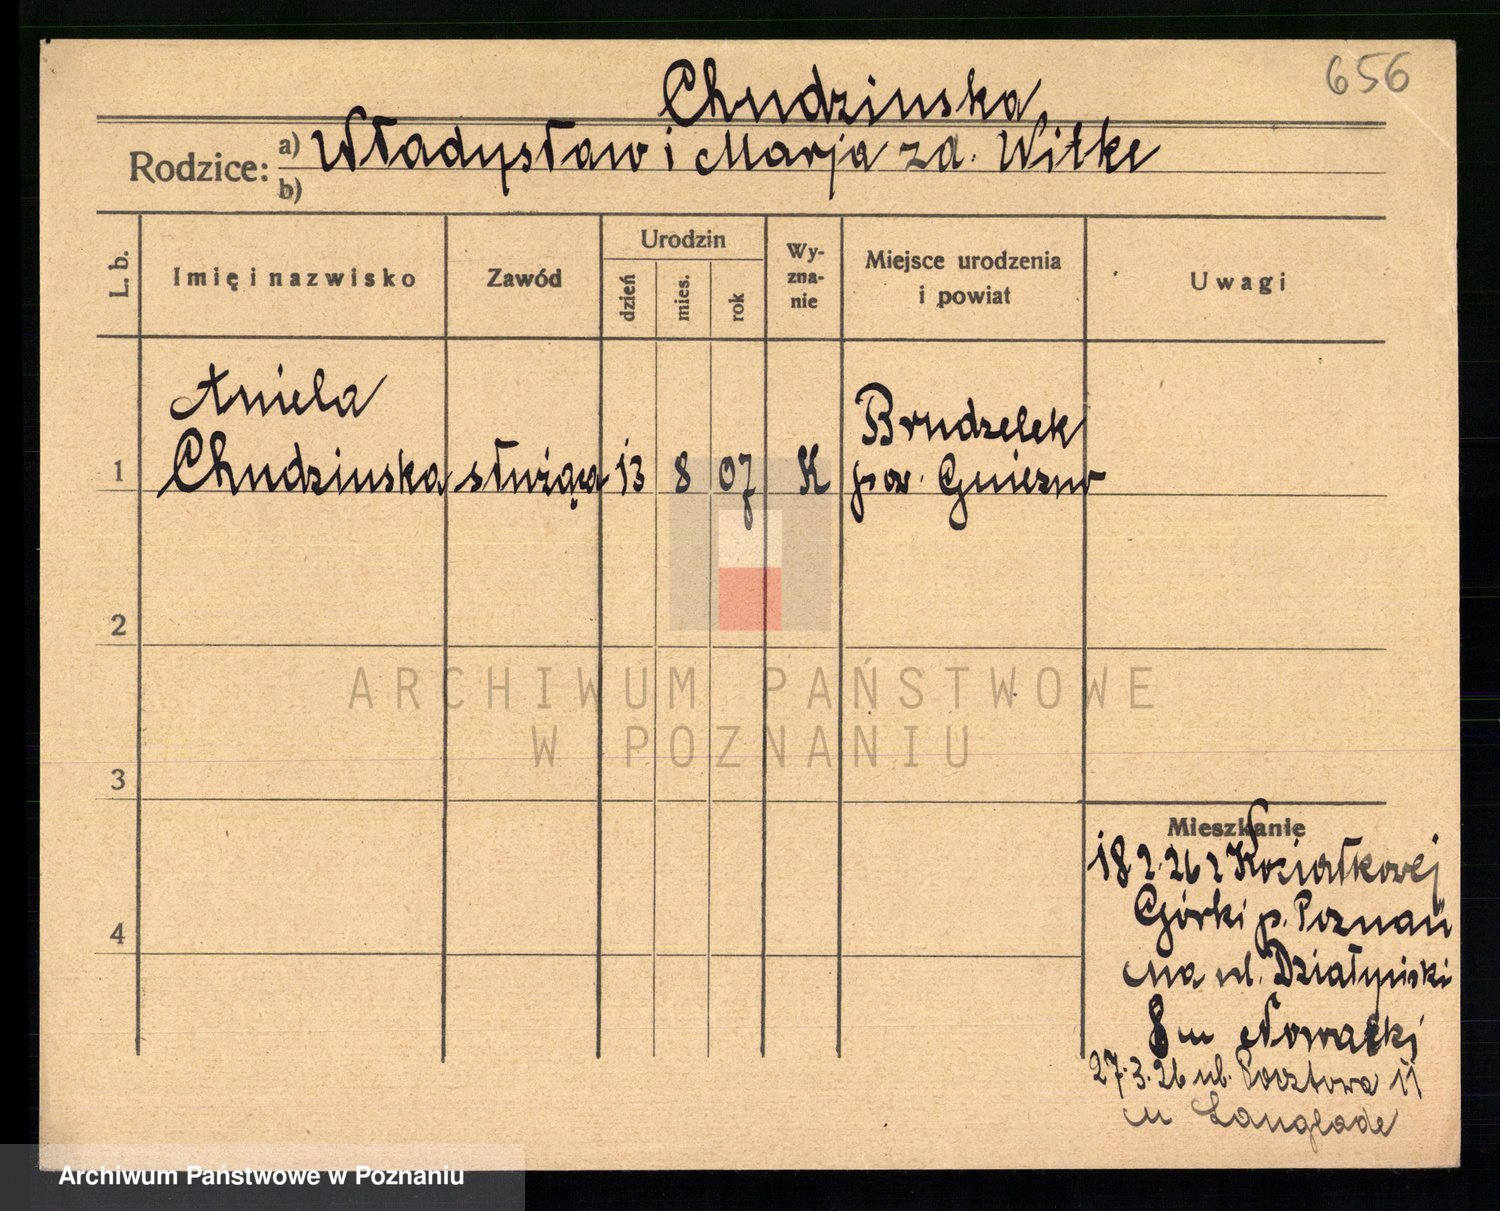 656
Chudzinska
Rodzice: a) Władysław i Marja zd. Witke
b)
L. b.
Imię i nazwisko
Zawód
Urodzin
dzień
mies.
rok
Wy-
zna-
nie
Miejsce urodzenia
i powiat
Uwagi
Aniela
Brudzelek
1 Chudzinska służąca 13 8 07 K pow. Gniezno
2
3
4
ARCHIWUM PAŃSTWOWE
W POZNANIU
Mieszkanie
18 2. 26 z Koziałkowej
Górki p. Poznań
na ul. Działyński
8 u Nowacki
27. 3. 26 ul. Pocztowa 11
u Langlade
Archiwum Państwowe w Poznaniu